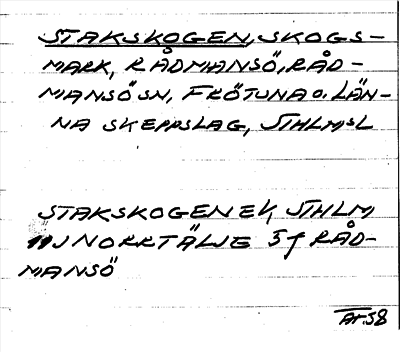 STAKSKOGEN, SKOGS-
MARK, RÅDMANSÖ, RÅD-
MANSÖ SN, FRÖTUNA O. LÄN-
NA SKEPPSLAG, STHLMSL
STAKSKOGEN EK, STHLM
11J NORRTÄLJE 5f RÅD-
MANSÖ